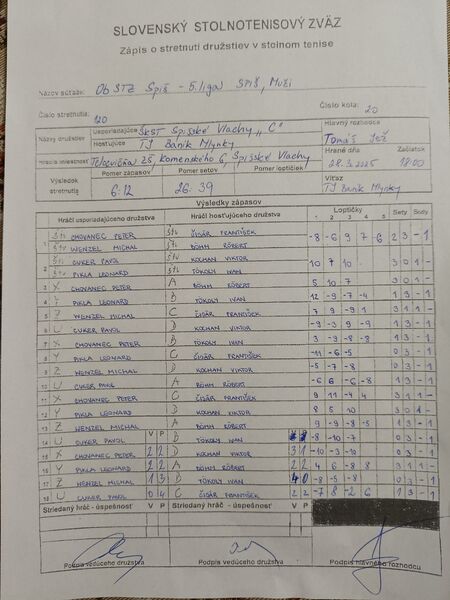 SLOVENSKÝ STOLNOTENISOVÝ ZVÄZ
Zápis o stretnutí družstiev v stolnom tenise
Názov súťaže: ObSTZ Spiš - 5. liga SPIŠ, Muži
Číslo stretnutia: 120 Číslo kola: 20
Názvy družstiev Usporiadajúce ŠKST Spišské Vlachy "C" Hlavný rozhodca
Hosťujúce TJ Baník Mlynky Tomáš
Hracia miestnosť Telocvičňa ZŠ, Komenského 6, Spišské Vlachy Hrané dňa Začiatok
28.3.2025 18:00
Výsledok stretnutia Pomer zápasov Pomer setov Pomer loptičiek Víťaz
6:12 26:39 TJ Baník Mlynky
Výsledky zápasov
Hráči usporiadajúceho družstva Hráči hosťujúceho družstva Loptičky Sety Body
1 2 3 4 5
1 CHOVANEC PETER ČIGÁR FRANTIŠEK -8 -6 9 7 -6 2 3 - 1
WENZEL MICHAL BÖHM RÓBERT
2 CUKER PAVOL KOCHAN VIKTOR 10 7 10 3 0 1 -
PIKLA LEONARD TÖKÖLY IVAN
3 X CHOVANEC PETER A BÖHM RÓBERT 5 10 7 3 0 1 -
4 Y PIKLA LEONARD B TÖKÖLY IVAN 12 -9 -7 -4 1 3 - 1
5 Z WENZEL MICHAL C ČIGÁR FRANTIŠEK 7 9 -9 3 1 1 -
6 U CUKER PAVOL D KOCHAN VIKTOR -9 -3 9 -9 1 3 - 1
7 X CHOVANEC PETER B TÖKÖLY IVAN 3 1 1 -
8 Y PIKLA LEONARD C ČIGÁR FRANTIŠEK -11 -6 -5 0 3 - 1
9 Z WENZEL MICHAL D KOCHAN VIKTOR -5 -7 -8 0 3 - 1
10 U CUKER PAVOL A BÖHM RÓBERT -6 6 -6 -8 1 3 - 1
11 X CHOVANEC PETER C ČIGÁR FRANTIŠEK 9 11 -4 4 3 1 1 -
12 Y PIKLA LEONARD D KOCHAN VIKTOR 8 5 10 3 0 1 -
13 Z WENZEL MICHAL A BÖHM RÓBERT 9 -9 -8 -5 1 3 - 1
14 U CUKER PAVOL V P B TÖKÖLY IVAN V P -8 -10 -7 0 3 - 1
15 X CHOVANEC PETER 2 2 D KOCHAN VIKTOR 3 1 -10 -3 -10 0 3 - 1
16 Y PIKLA LEONARD 2 2 A BÖHM RÓBERT 2 2 4 6 -8 3 1 1 -
17 Z WENZEL MICHAL 1 3 B TÖKÖLY IVAN 4 0 -8 -5 -8 0 3 - 1
18 U CUKER PAVOL 0 4 C ČIGÁR FRANTIŠEK 2 2 -7 8 -2 1 3 - 1
Striedaný hráč - úspešnosť V P Striedaný hráč - úspešnosť V P
Podpis vedúceho družstva Podpis vedúceho družstva Podpis hlavného rozhodcu